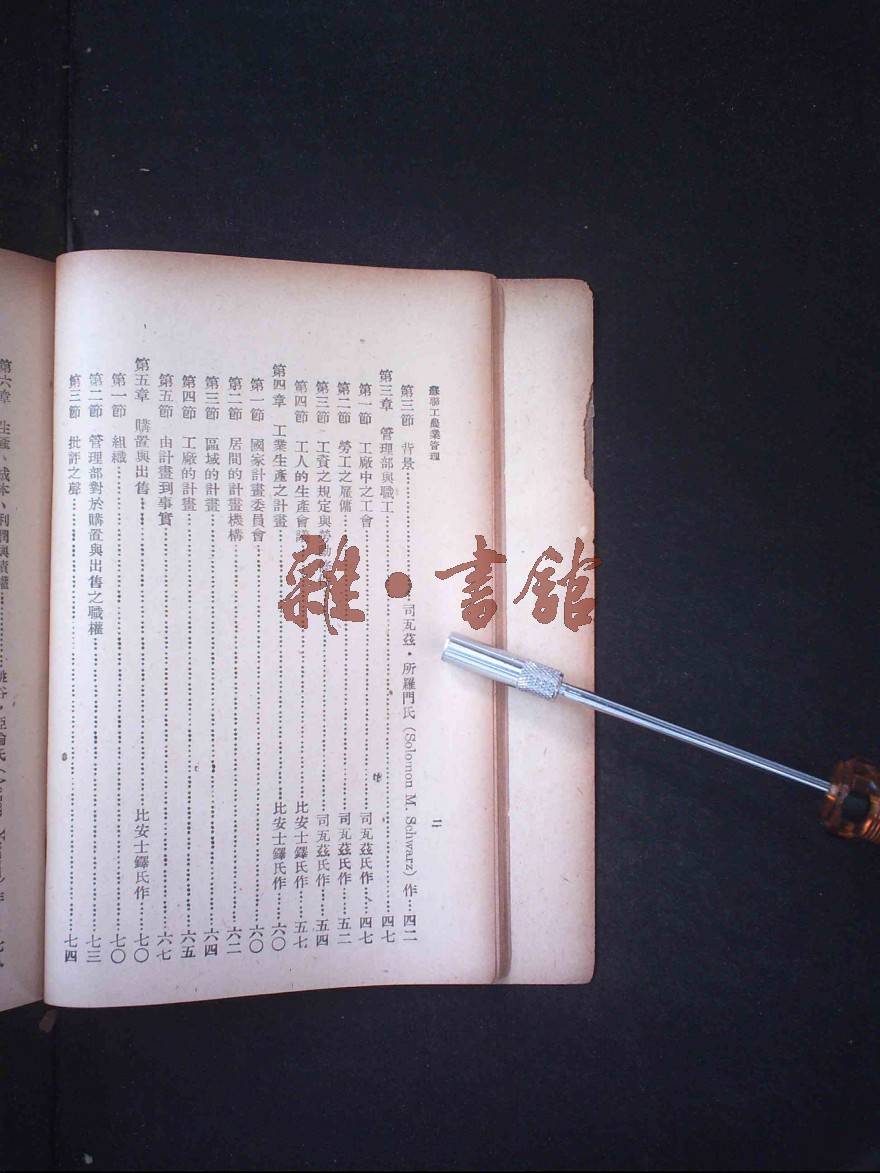 蘇聯工農業管理
二
第三節 背景……司瓦茲·所羅門氏(Solomon M. Schwarz)作…四二
第三章 管理部與職工……四七
第一節 工廠中之工會……司瓦茲氏作……四七
第二節 勞工之雇傭……司瓦茲氏作……五二
第三節 工資之規定與勞動……司瓦茲氏作……五四
第四節 工人的生產會議……比安士鐸氏作……五七
第四章 工業生產之計畫……比安士鐸氏作……六〇
第一節 國家計畫委員會……六〇
第二節 居間的計畫機構……六二
第三節 區域的計畫……六四
第四節 工廠的計畫……六五
第五節 由計畫到事實……六七
第五章 購置與出售……比安士鐸氏作……七〇
第一節 組織……七〇
第二節 管理部對於購置與出售之職權……七三
第三節 批評之聲……七四
第六章 生產、成本、利潤與債權……
雜·書館